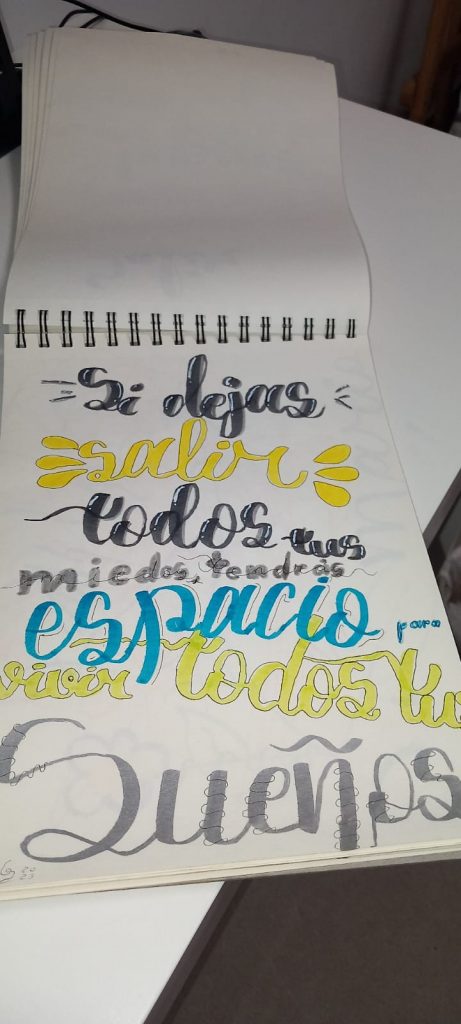 Si dejas
salir
todos tus
miedos, tendrás
espacio para
vivir todos tus
Sueños
20
23